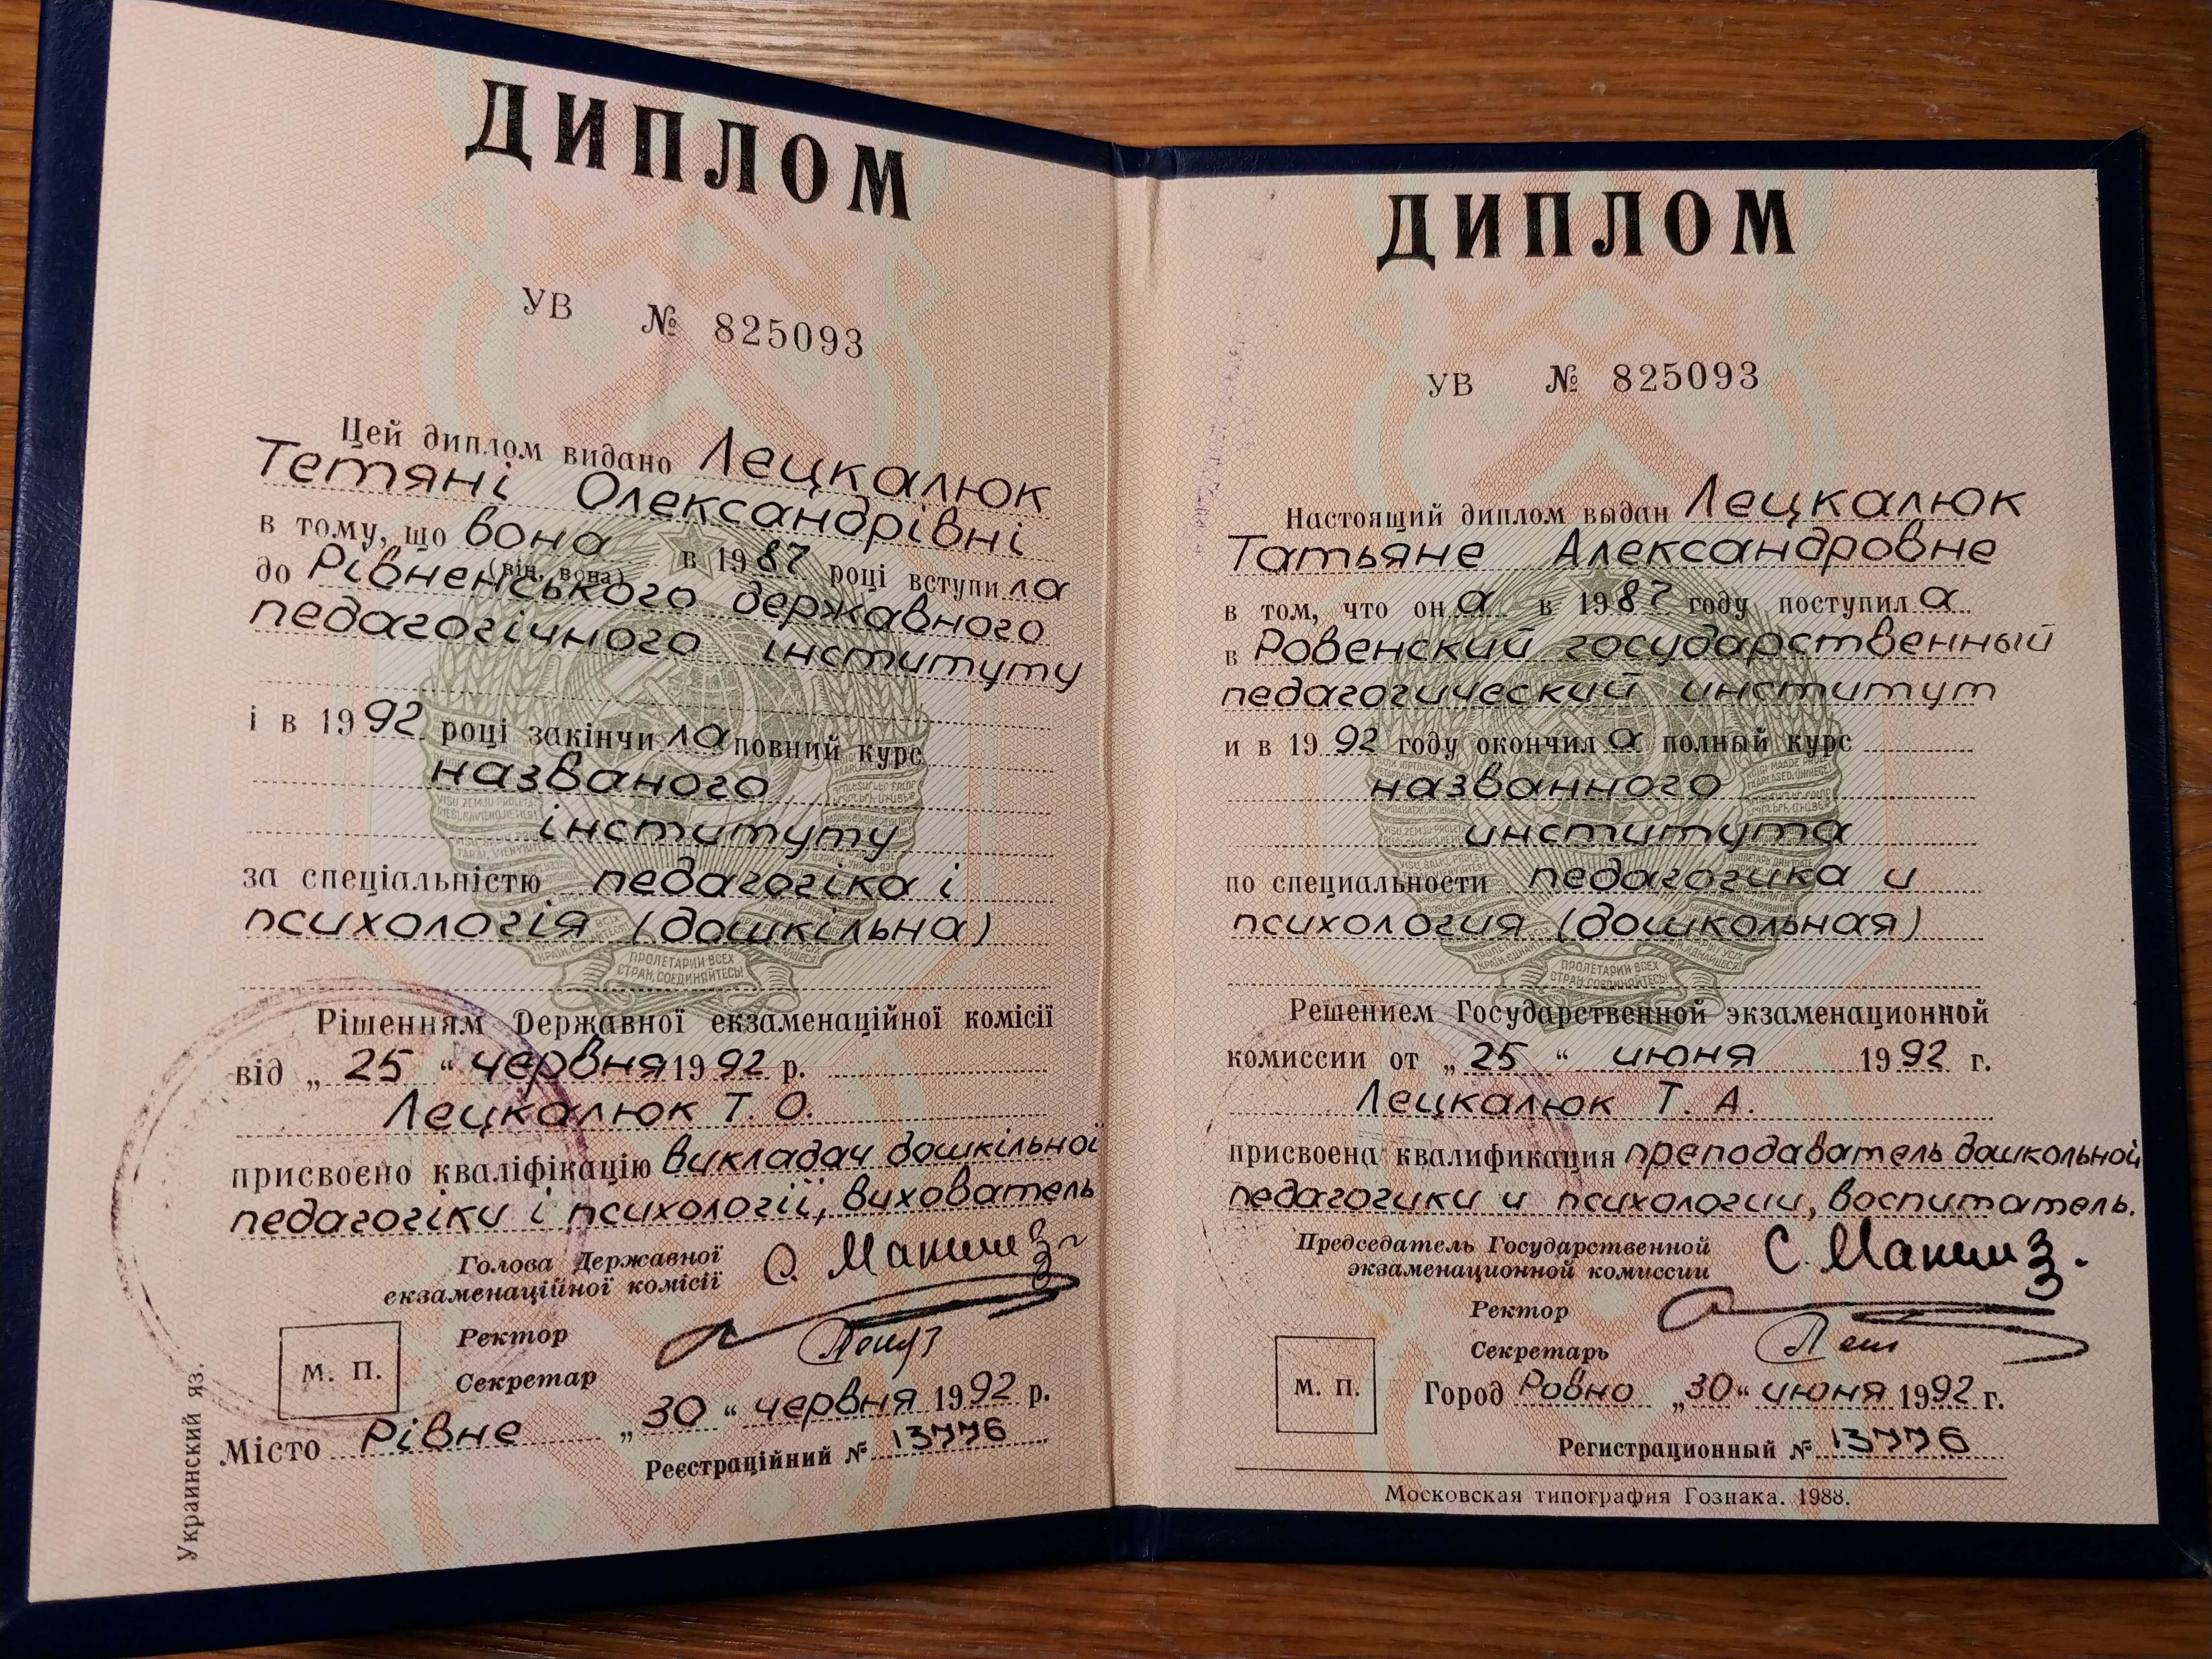 ДИПЛОМ
УВ № 825093
Цей диплом видано Лецкалюк
Тетяні Олександрівні
в тому, що вона в 1987 році вступила
(він, вона)
до Рівненського державного
педагогічного інституту
і в 1992 році закінчила повний курс
названого
інституту
за спеціальністю педагогіка і
психологія (дошкільна)
ПРОЛЕТАРИИ ВСЕХ
СТРАН, СОЕДИНЯЙТЕСЬ!
Рішенням Державної екзаменаційної комісії
від „25“ червня 1992 р.
Лецкалюк Т. О.
присвоєно кваліфікацію викладач дошкільної
педагогіки і психології, вихователь
Голова Державної
екзаменаційної комісії
Ректор
Секретар
М. П.
Місто Рівне „30“ червня 1992 р.
Реєстраційний № 13776
Украинский яз.
ДИПЛОМ
УВ № 825093
Настоящий диплом выдан Лецкалюк
Татьяне Александровне
в том, что она в 1987 году поступила
в Ровенский государственный
педагогический институт
и в 1992 году окончила полный курс
названного
института
по специальности педагогика и
психология (дошкольная)
ПРОЛЕТАРИИ ВСЕХ
СТРАН, СОЕДИНЯЙТЕСЬ!
Решением Государственной экзаменационной
комиссии от „25“ июня 1992 г.
Лецкалюк Т. А.
присвоена квалификация преподаватель дошкольной
педагогики и психологии, воспитатель.
Председатель Государственной
экзаменационной комиссии
Ректор
Секретарь
М. П.
Город Ровно „30“ июня 1992 г.
Регистрационный № 13776
Московская типография Гознака. 1988.